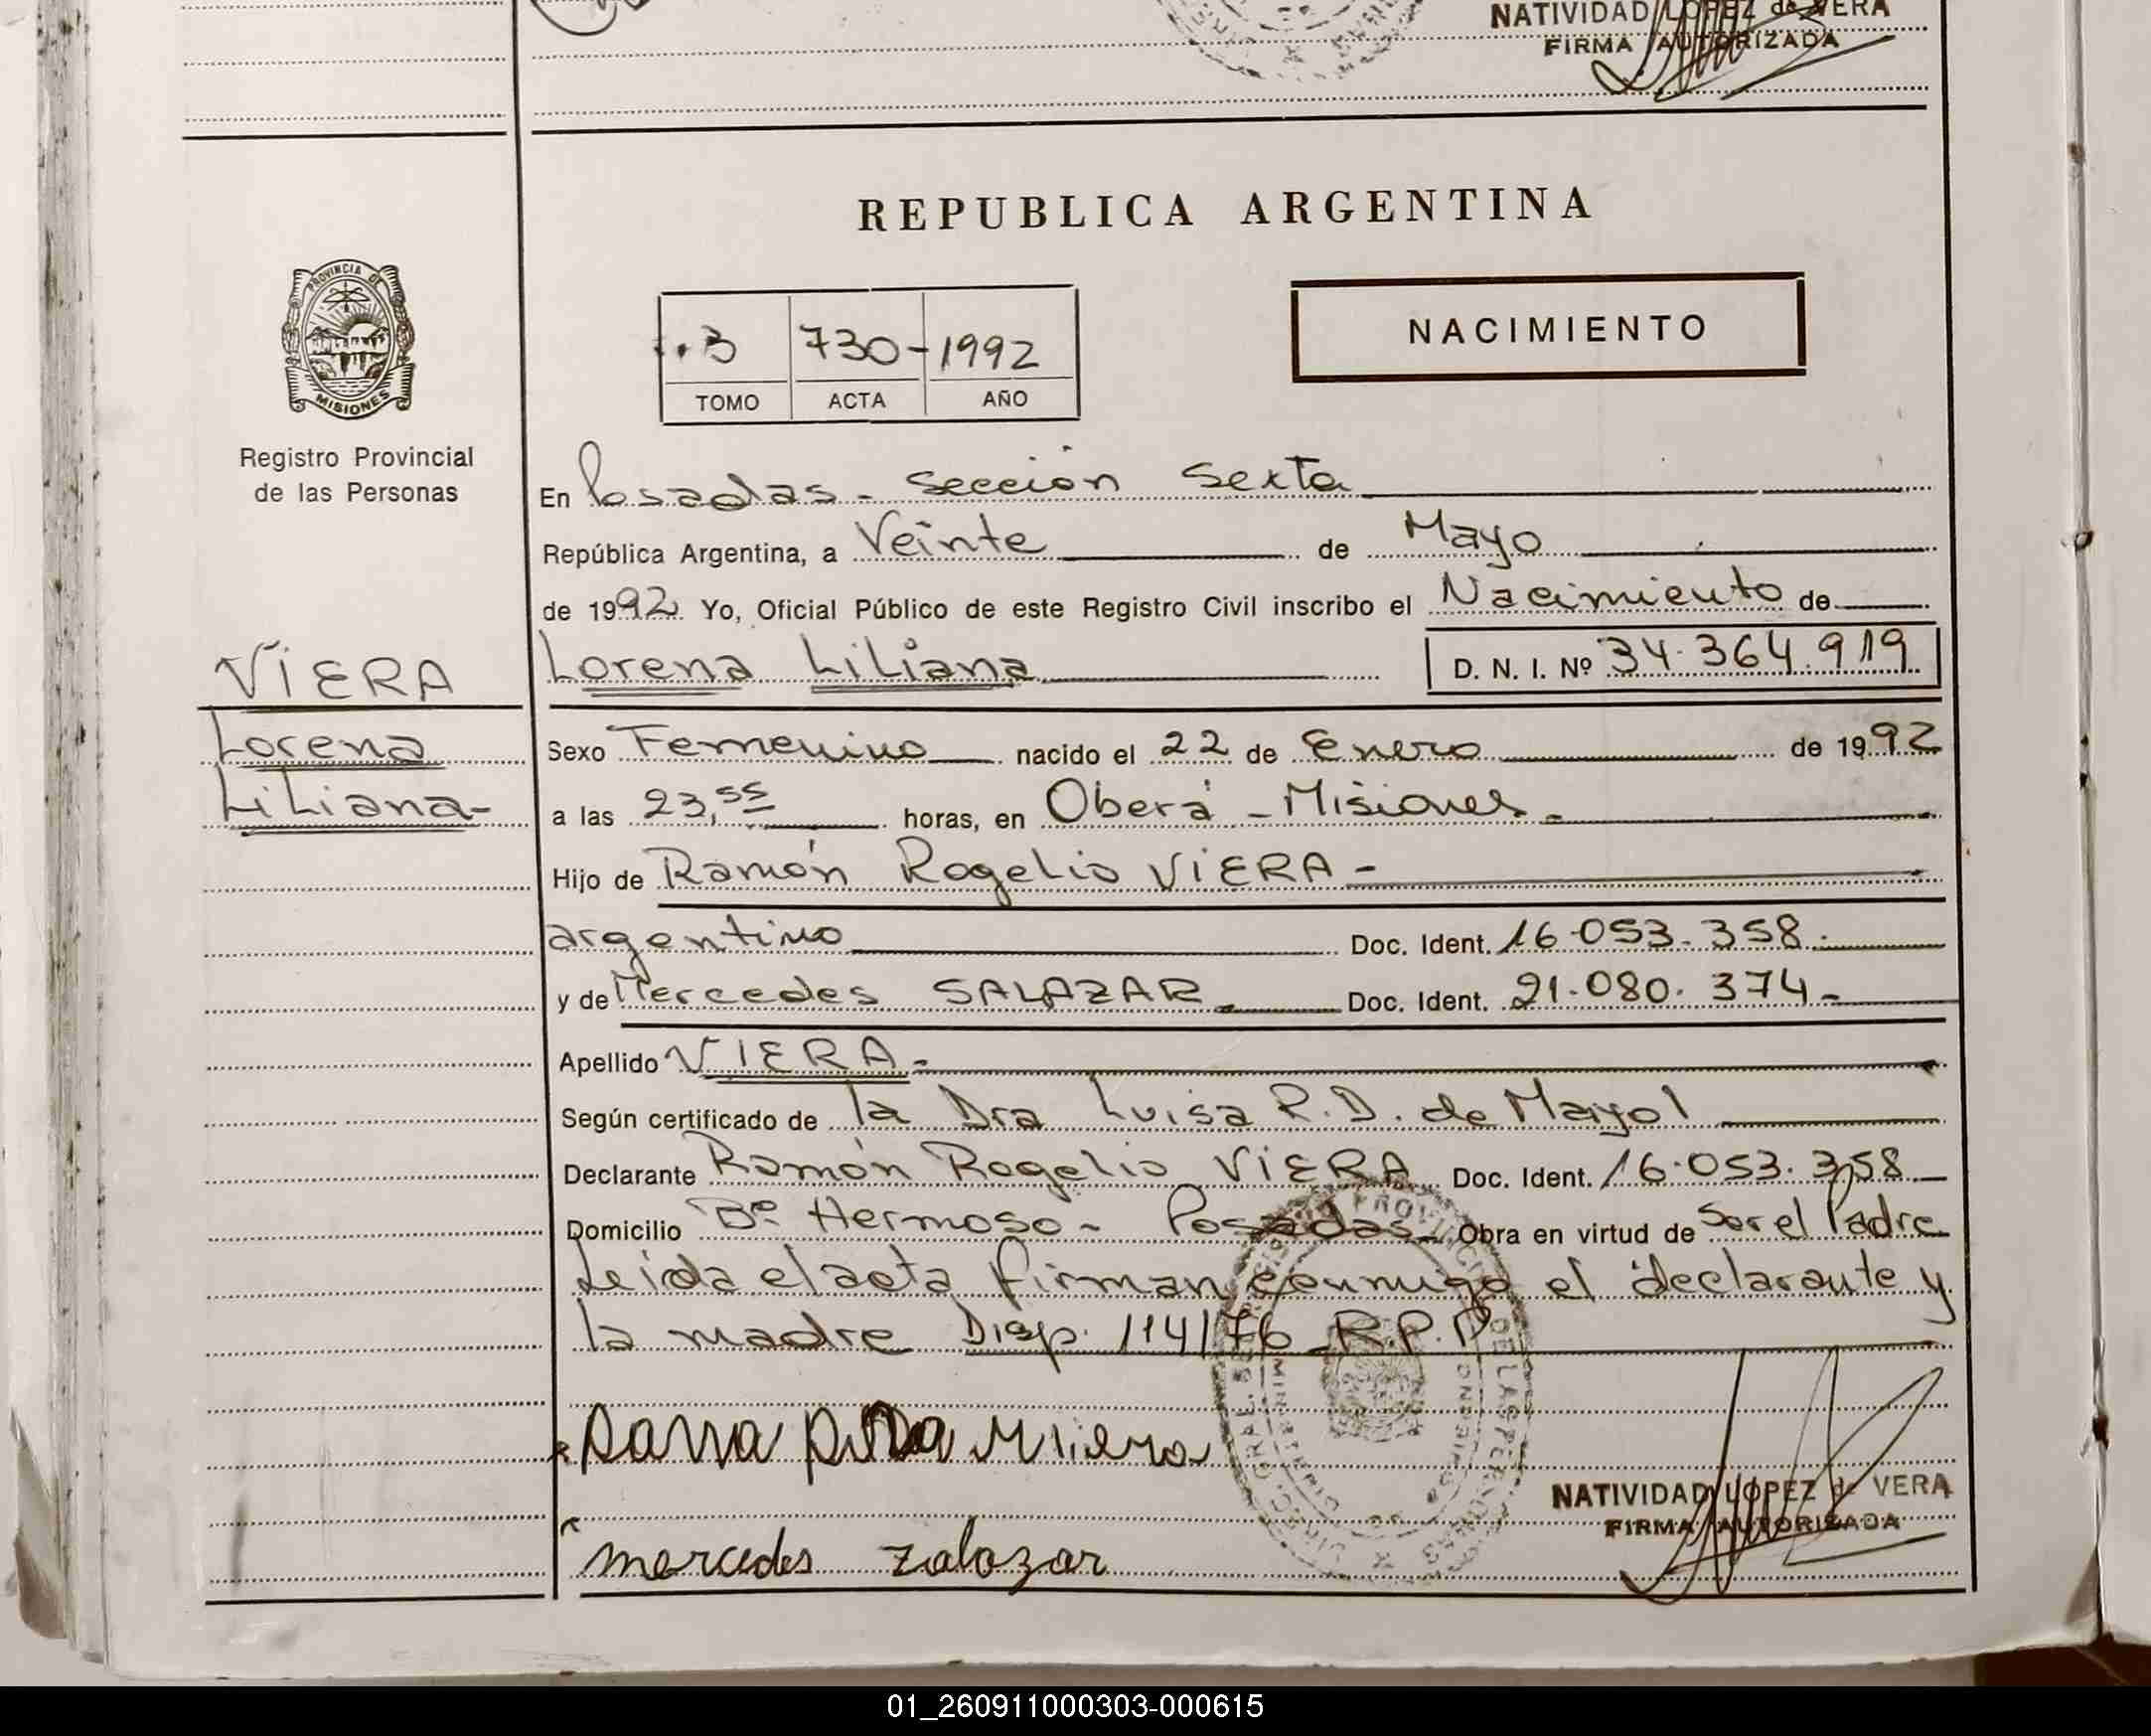 NATIVIDAD LOPEZ de VERA
FIRMA AUTORIZADA
REPUBLICA ARGENTINA
PROVINCIA DE
MISIONES
Registro Provincial
de las Personas
3 730- 1992
TOMO ACTA AÑO
NACIMIENTO
En Posadas - Sección Sexta
República Argentina, a Veinte de Mayo
de 1992 Yo, Oficial Público de este Registro Civil inscribo el Nacimiento de
VIERA
Lorena Liliana D. N. I. Nº 34.364.919
Lorena
Liliana-
Sexo Femenino nacido el 22 de Enero de 1992
a las 23,55 horas, en Oberá - Misiones.-
Hijo de Ramón Rogelio VIERA -
argentino Doc. Ident. 16.053.358.
y de Mercedes SALAZAR Doc. Ident. 21.080.374-
Apellido VIERA-
Según certificado de la Dra Luisa R.D. de Mayol
Declarante Ramón Rogelio VIERA Doc. Ident. 16.053.358
Domicilio Bº Hermoso - Posadas Obra en virtud de Ser el Padre
Leida el acta firman conmigo el declarante y
la madre Disp. 114/76 R.P.P
mercedes zalazar
NATIVIDAD LOPEZ de VERA
FIRMA AUTORIZADA
01_260911000303-000615